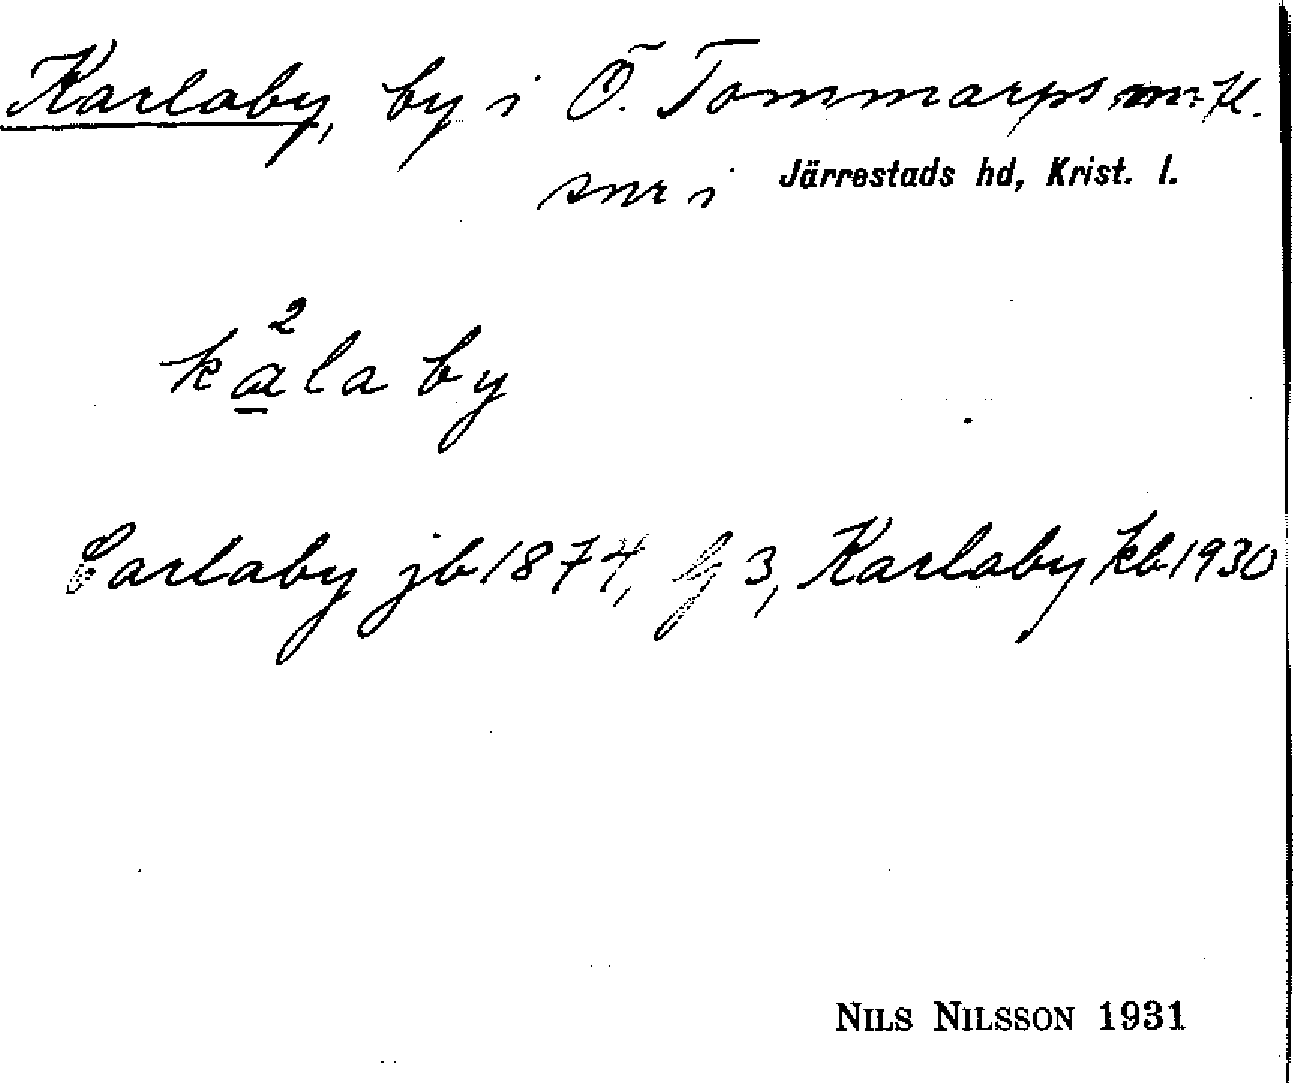 Karlaby, by i Ö. Tommarps m. fl.
snr i Järrestads hd, Krist. l.
2
kala by
Carlaby jb 1874, G 3, Karlaby kb 1930
NILS NILSSON 1931